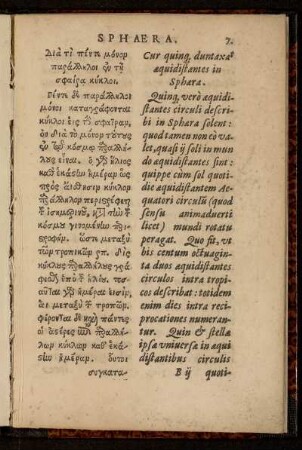 SPHAERA. 7.
Διὰ τί πέντε μόνον
παράλληλοι ἐν τῇ
σφαίρᾳ κύκλοι.
Πέντε δὲ παράλληλοι
μόνοι καταγράφονται
κύκλοι εἰς τὴν σφαῖραν,
οὐ διὰ τὸ μόνον τούτους
ἐν τῷ κόσμῳ παραλλή-
λους εἶναι. ὁ γὰρ ἥλιος
καθ' ἑκάστην ἡμέραν ὡς
πρὸς αἴσθησιν κύκλον
παράλληλον περιγράφει
τῷ ἰσημερινῷ, τοῦ
κόσμου γινομένην περι-
στροφήν. ὥστε μεταξὺ
τῶν τροπικῶν δὶς
κύκλους παραλλήλους γρά-
φεσθαι ὑπὸ τοῦ ἡλίου. το-
σαῦται γὰρ ἡμέραι εἰσὶν,
αἱ μεταξὺ τῶν τροπῶν.
φέρονται δὲ καὶ πάντες
οἱ ἀστέρες ἐπὶ παραλλή-
λων κύκλων καθ' ἑκά-
στην ἡμέραν. οὗτοι
συγκατα-
Cur quinq; duntaxat
aequidistantes in
Sphara.
Quinq; verò æquidi-
stantes circuli descri-
bi in Sphara solent:
quod tamen non eò va-
let, quasi ÿ soli in mun
do æquidistantes sint:
quippe cùm sol quoti-
die æquidistantem Ae-
quatori circulũ (quod
sensu animaduerti
licet) mundi rotatu
peragat. Quo fit, vt
bis centum octuagin-
ta duos æquidistantes
circulos intra tropi-
cos describat: totidem
enim dies intra reci-
procationes numeran-
tur. Quin & stellæ
ipsæ vniuersæ in æqui
distantibus circulis
B ÿ quoti-